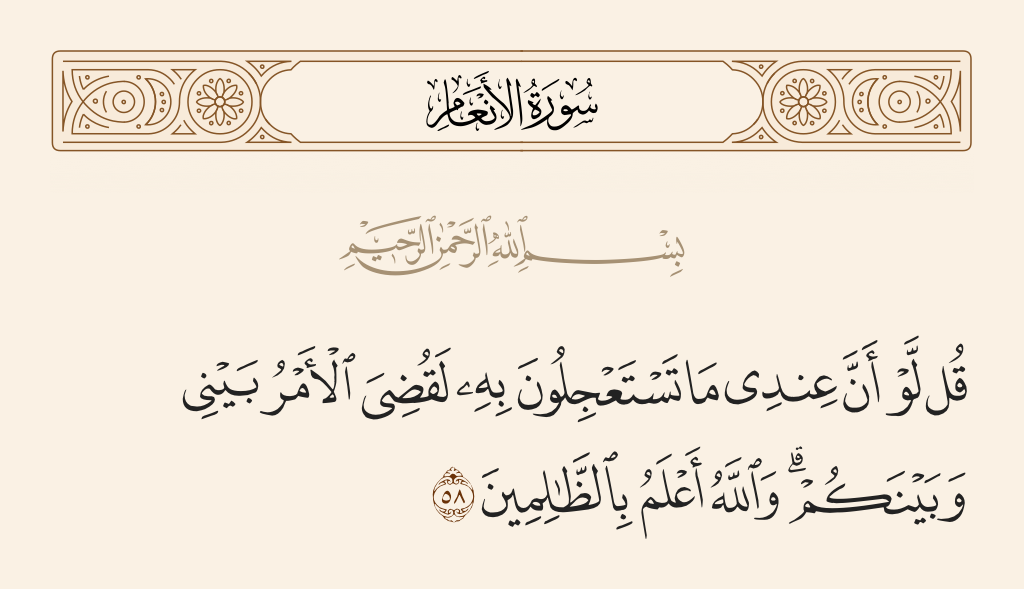 سُورَةُ الأَنْعَامِ
بِسْمِ ٱللَّهِ ٱلرَّحْمَٰنِ ٱلرَّحِيمِ
قُل لَّوْ أَنَّ عِندِى مَا تَسْتَعْجِلُونَ بِهِۦ لَقُضِىَ ٱلْأَمْرُ بَيْنِى
وَبَيْنَكُمْ ۗ وَٱللَّهُ أَعْلَمُ بِٱلظَّٰلِمِينَ ٥٨